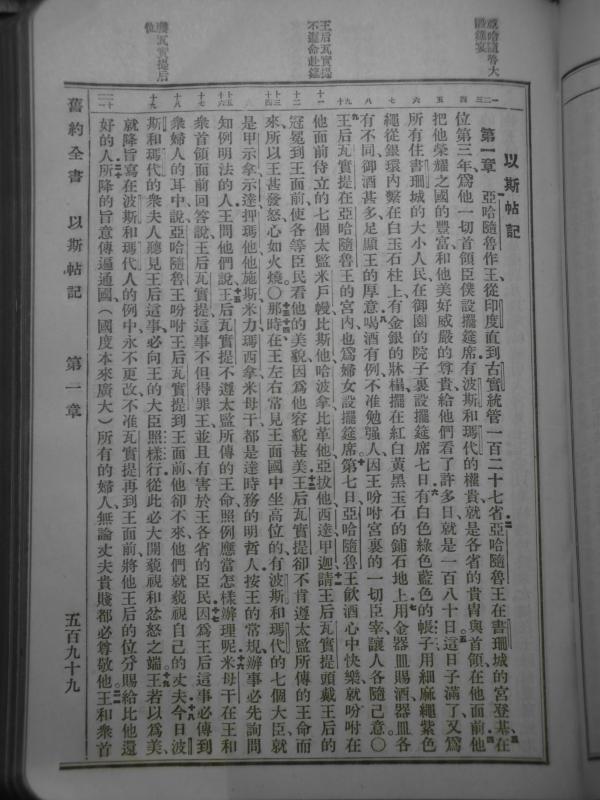 亞哈隨魯大
設筵宴
王后瓦實提
不遵命赴筵
廢瓦實提后
位
以斯帖記
第一章 亞哈隨魯作王從印度直到古實統管一百二十七省亞哈隨魯王在書珊城的宮登基在
位第三年爲他一切首領臣僕設擺筵席有波斯和瑪代的權貴就是各省的貴冑與首領在他面前他
把他榮耀之國的豐富和他美好威嚴的尊貴給他們看了許多日就是一百八十日這日子滿了又爲
所有住書珊城的大小人民在御園的院子裏設擺筵席七日有白色綠色藍色的帳子用細麻繩紫色
繩從銀環內繫在白玉石柱上有金銀的牀榻擺在紅白黃黑玉石的鋪石地上用金器皿賜酒器皿各
有不同御酒甚多足顯王的厚意喝酒有例不准勉强人因王吩咐宮裏的一切臣宰讓人各隨己意〇
王后瓦實提在亞哈隨魯王的宮內也爲婦女設擺筵席第七日亞哈隨魯王飲酒心中快樂就吩咐在
他面前侍立的七個太監米戶幔比斯他哈波拿比革他亞拔他西達甲迦請王后瓦實提頭戴王后的
冠冕到王面前使各等臣民看他的美貌因爲他容貌甚美王后瓦實提卻不肯遵太監所傳的王命而
來所以王甚發怒心如火燒〇那時在王左右常見王面國中坐高位的有波斯和瑪代的七個大臣就
是甲示拿示達押瑪他他施斯米力瑪西拿米母干都是達時務的明哲人按王的常規辦事必先詢問
知例明法的人王問他們說王后瓦實提不遵太監所傳的王命照例應當怎樣辦理呢米母干在王和
衆首領面前回答說王后瓦實提這事不但得罪王並且有害於王各省的臣民因爲王后這事必傳到
衆婦人的耳中說亞哈隨魯王吩咐王后瓦實提到王面前他卻不來他們就藐視自己的丈夫今日波
斯和瑪代的衆夫人聽見王后這事必向王的大臣照樣行從此必大開藐視和忿怒之端王若以爲美
就降旨寫在波斯和瑪代人的例中永不更改不准瓦實提再到王面前將他王后的位分賜給比他還
好的人所降的旨意傳遍通國（國度本來廣大）所有的婦人無論丈夫貴賤都必尊敬他王和衆首
舊約全書 以斯帖記 第一章 五百九十九